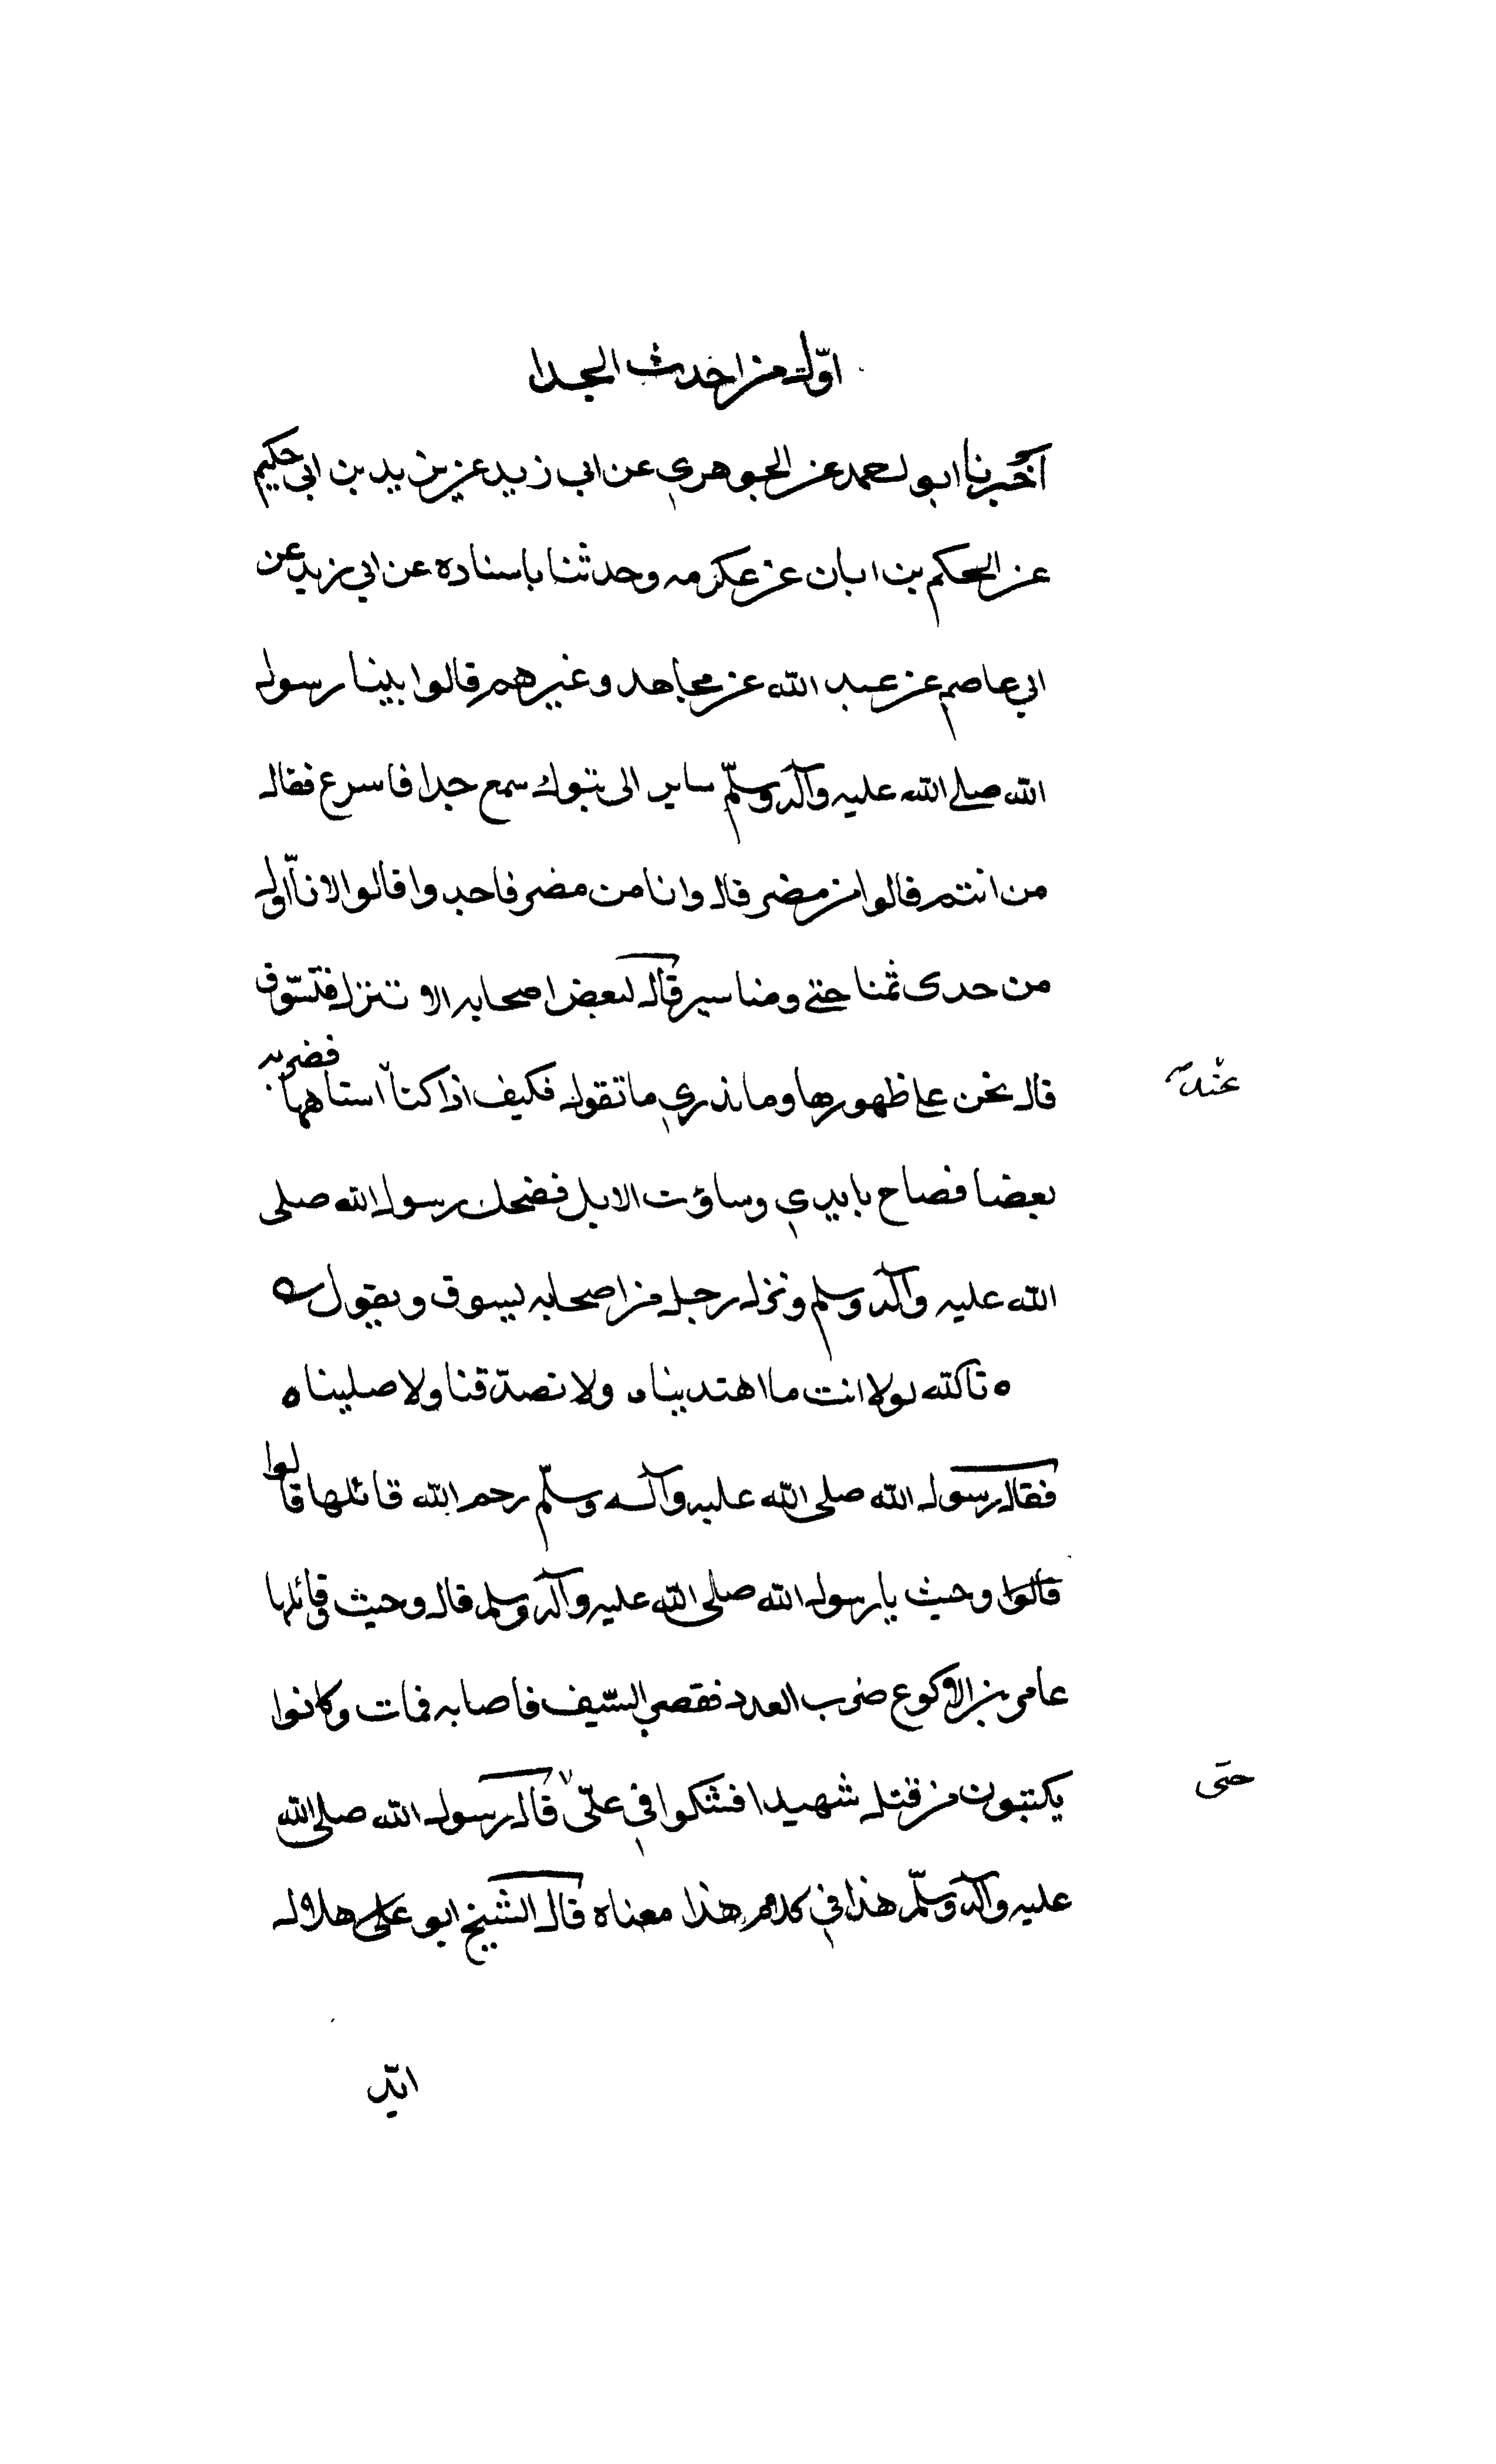 اوّل من احدث الحدا
اخبرنا ابو احمد عن الجوهري عن ابي زيد عن يزيد بن ابي حكيم
عن الحكم بن ابان عن عكرمه وحدثنا باسناده عن ابي زيد عن
ابي عاصم عن عبد الله عن مجاهد وغيرهم قالوا بينا رسول
الله صلى الله عليه وآله وسلّم ساير الى تبوك سمع حدا فاسرع فقال
من انتم قالوا من مضر قال وانا من مضر فاحدوا قالوا لانا اول
من حدى ثمنا حتى ومنا سير قال لبعض اصحابه الا تنزل فتسوّق
قال نحن على ظهورها وما ندري ما تقول فكيف اذا كنا استاهها فضربه
عنده
بعضا فصاح بايدي وساؤت الابل فضحك رسول الله صلى
الله عليه وآله وسلم ونزل رجل من اصحابه يسوق ويقول
ه تالله لولا انت ما اهتدينا ه ولا تصدّقنا ولا صلينا ه
فقال رسول الله صلى الله عليه وآله وسلّم رحم الله قائلها قالوا
قالوا وحيث يا رسول الله صلى الله عليه وآله وسلم قال وحيث وقائلها
عامر بن الاكوع ضرب العدد فقصي السّيف فاصابه فمات وكانوا
يكتبون من قتل شهيدا فشكوا في علّى قال رسول الله صلى الله
حتى
عليه وآله وسلّم هذا في كلام هذا معناه قال الشيخ ابو هلال
ايّد